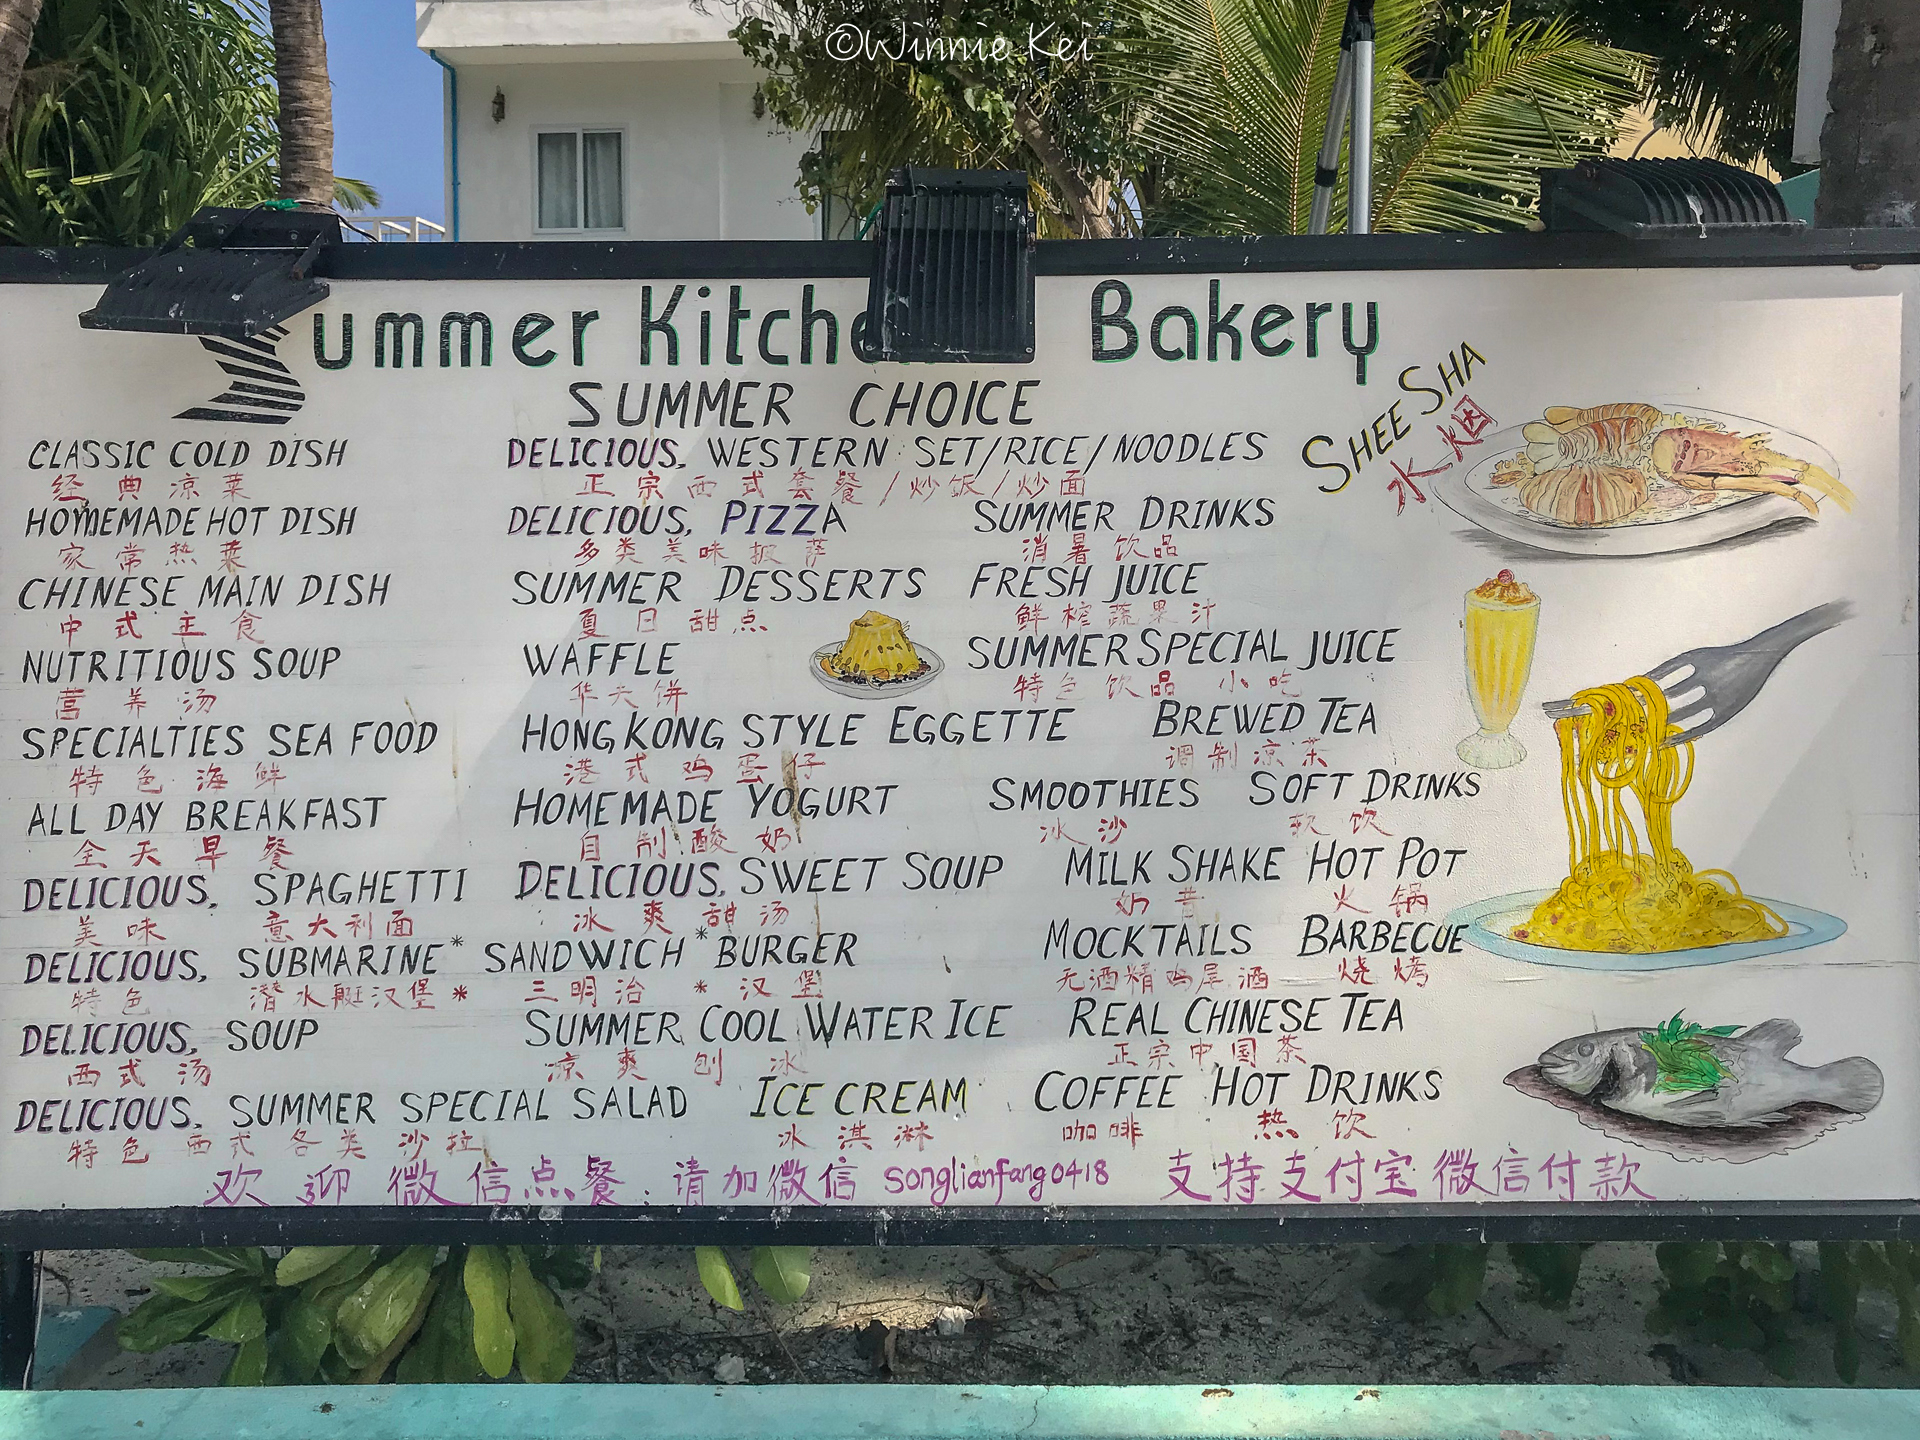 ©Winnie Kei
Summer Kitche Bakery
SUMMER CHOICE
SHEE SHA
水烟
CLASSIC COLD DISH
经典凉菜
HOMEMADE HOT DISH
家常热菜
CHINESE MAIN DISH
中式主食
NUTRITIOUS SOUP
营养汤
SPECIALTIES SEA FOOD
特色海鲜
ALL DAY BREAKFAST
全天早餐
DELICIOUS, SPAGHETTI
美味 意大利面
DELICIOUS, SUBMARINE * SANDWICH * BURGER
特色 潜水艇汉堡 * 三明治 * 汉堡
DELICIOUS, SOUP
西式汤
DELICIOUS, SUMMER SPECIAL SALAD
特色西式各类沙拉
DELICIOUS, WESTERN SET/RICE/NOODLES
正宗西式套餐/炒饭/炒面
DELICIOUS, PIZZA
多类美味披萨
SUMMER DESSERTS
夏日甜点
WAFFLE
华夫饼
HONG KONG STYLE EGGETTE
港式鸡蛋仔
HOMEMADE YOGURT
自制酸奶
DELICIOUS, SWEET SOUP
冰爽甜汤
SUMMER COOL WATER ICE
凉爽刨冰
ICE CREAM
冰淇淋
SUMMER DRINKS
消暑饮品
FRESH JUICE
鲜榨蔬果汁
SUMMER SPECIAL JUICE
特色饮品小吃
BREWED TEA
调制凉茶
SMOOTHIES SOFT DRINKS
冰沙 软饮
MILK SHAKE HOT POT
奶昔 火锅
MOCKTAILS BARBECUE
无酒精鸡尾酒 烧烤
REAL CHINESE TEA
正宗中国茶
COFFEE HOT DRINKS
咖啡 热饮
欢迎微信点餐.请加微信 songlianfang0418 支持支付宝微信付款